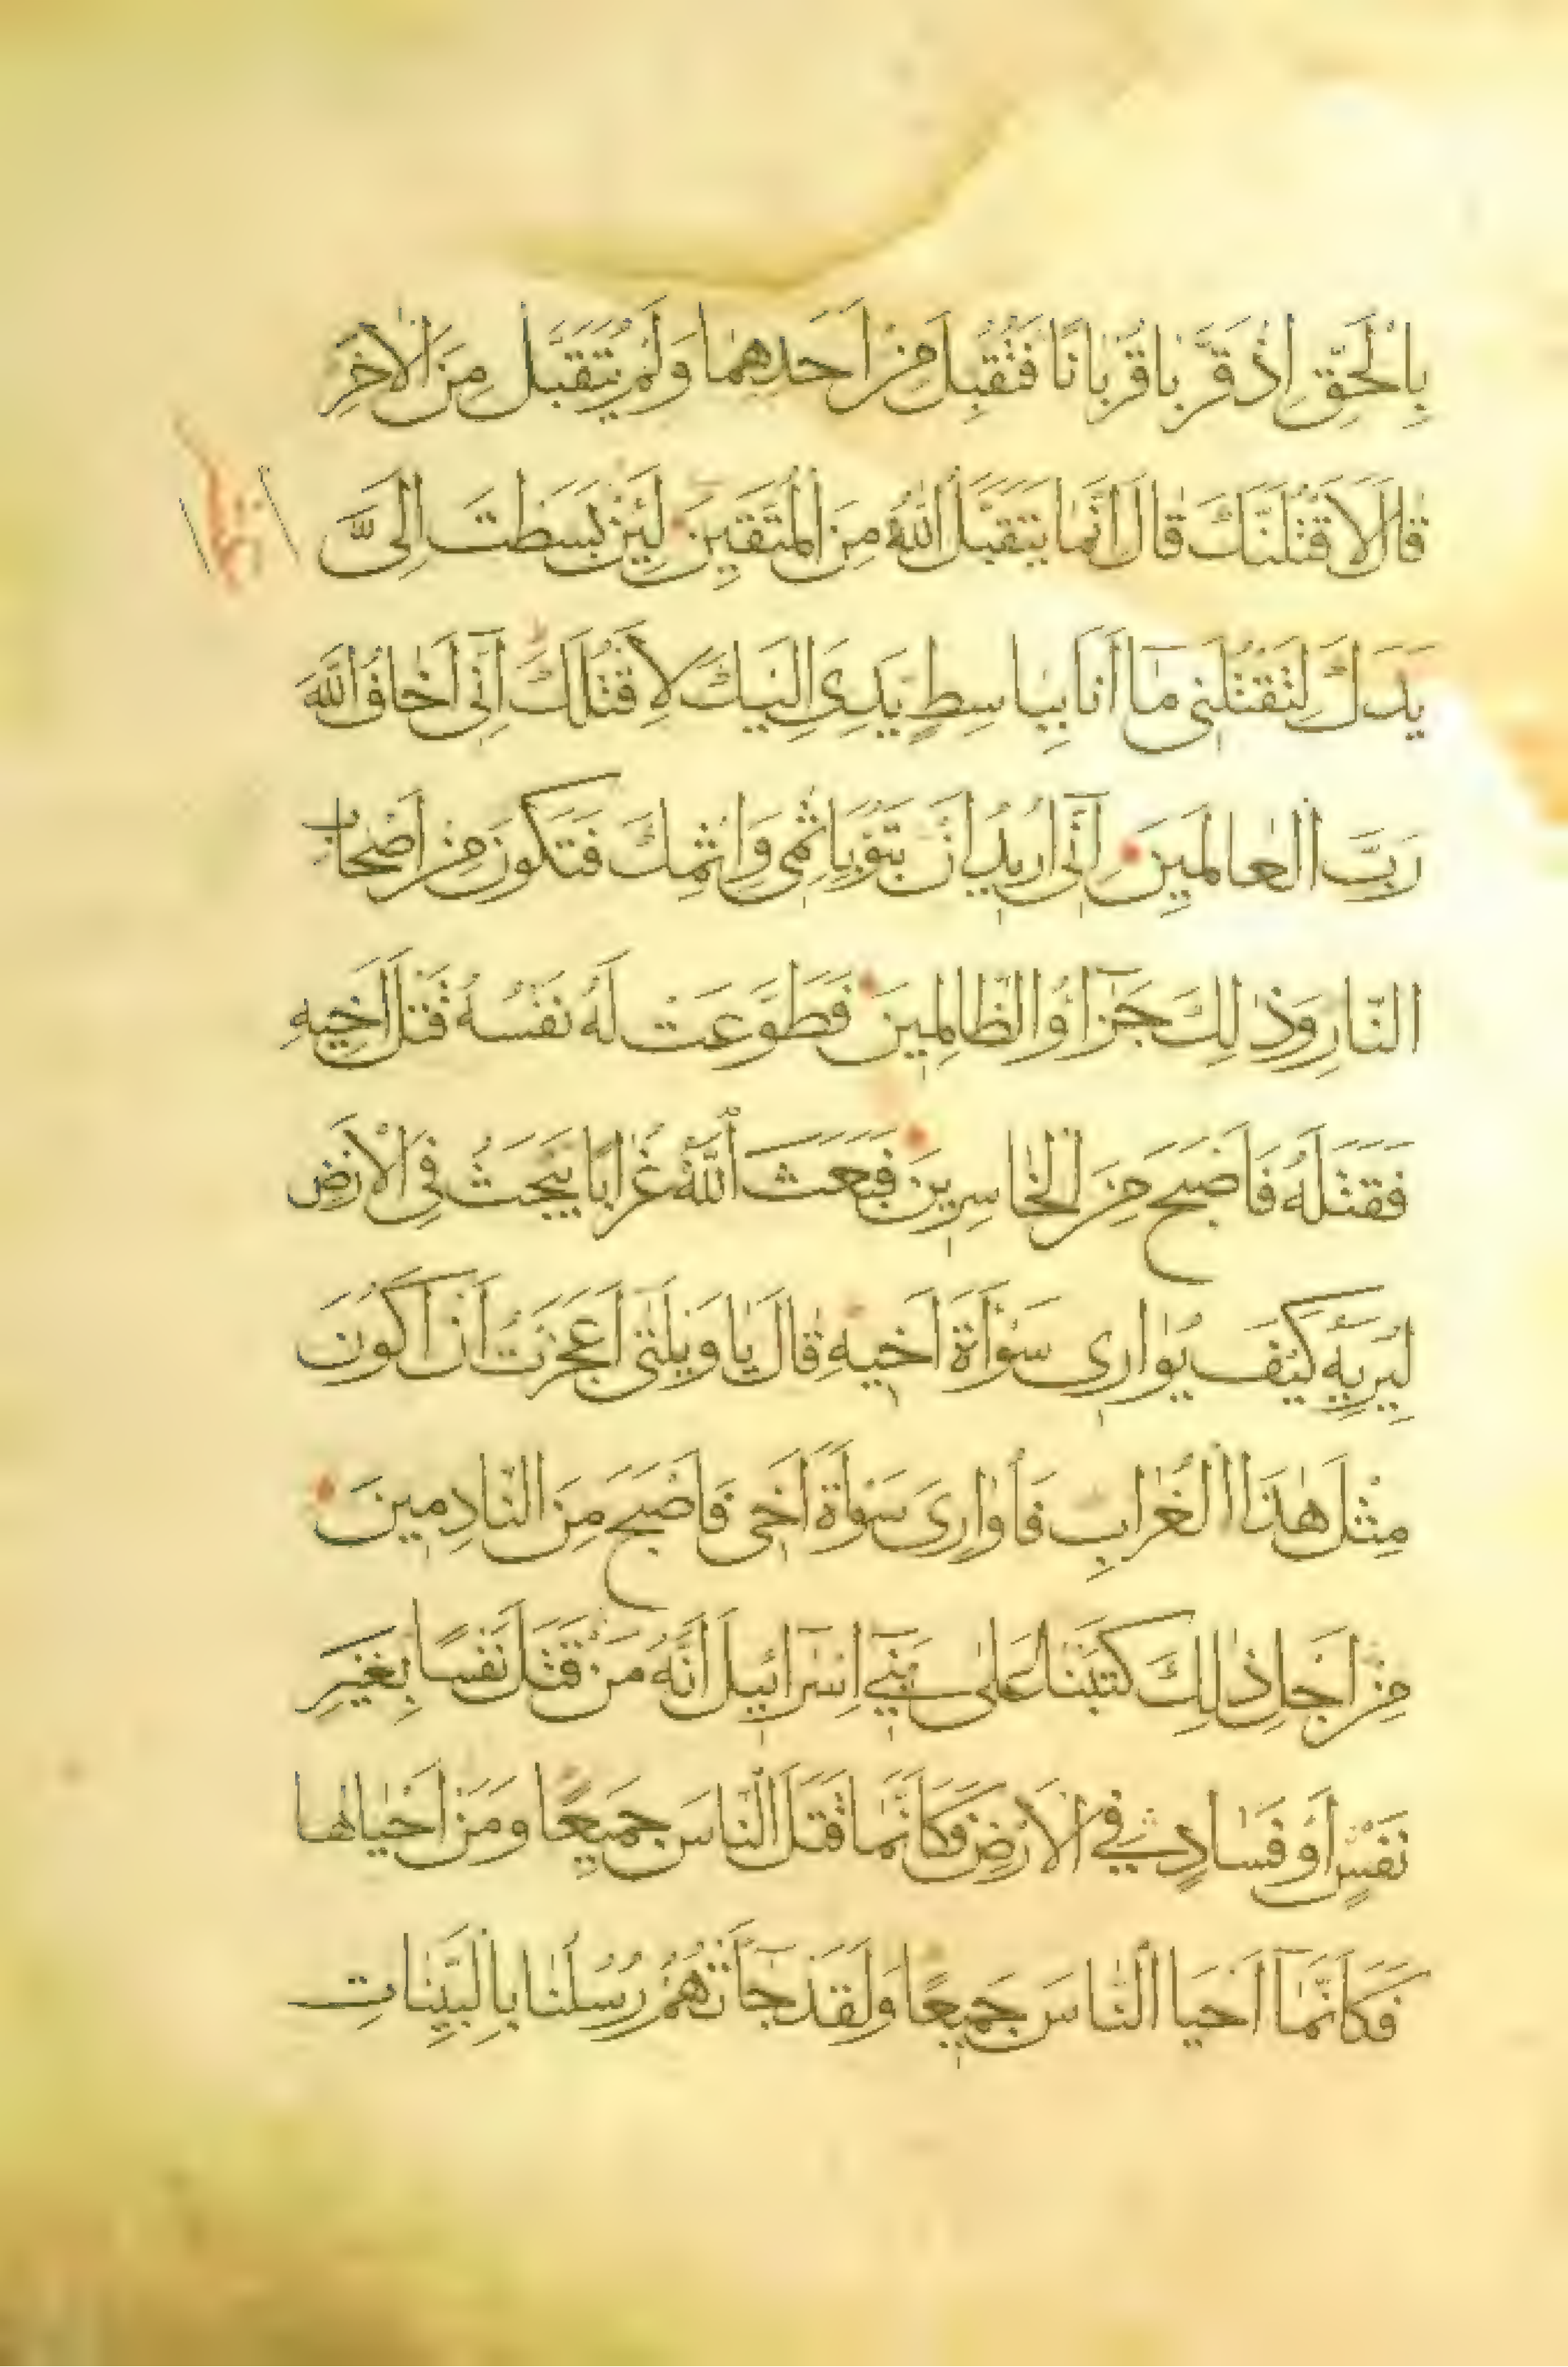 بِالْحَقِّ اِذْ قَرَّبَا قُرْبَانًا فَتُقُبِّلَ مِنْ اَحَدِهِمَا وَلَمْ يُتَقَبَّلْ مِنَ الْاٰخَرِ
قَالَ لَاَقْتُلَنَّكَ قَالَ اِنَّمَا يَتَقَبَّلُ اللّٰهُ مِنَ الْمُتَّقِينَ لَئِنْ بَسَطْتَ اِلَىَّ
يَدَكَ لِتَقْتُلَنِى مَا اَنَا بِبَاسِطٍ يَدِىَ اِلَيْكَ لِاَقْتُلَكَ اِنِّى اَخَافُ اللّٰهَ
رَبَّ الْعَالَمِينَ اِنِّى اُرِيدُ اَنْ تَبُوْءَ بِاِثْمِى وَاِثْمِكَ فَتَكُونَ مِنْ اَصْحَابِ
النَّارِ وَذٰلِكَ جَزَآؤُا الظَّالِمِينَ فَطَوَّعَتْ لَهُ نَفْسُهُ قَتْلَ اَخِيهِ
فَقَتَلَهُ فَاَصْبَحَ مِنَ الْخَاسِرِينَ فَبَعَثَ اللّٰهُ غُرَابًا يَبْحَثُ فِى الْاَرْضِ
لِيُرِيَهُ كَيْفَ يُوَارِى سَوْاَةَ اَخِيهِ قَالَ يَا وَيْلَتٰى اَعَجَزْتُ اَنْ اَكُونَ
مِثْلَ هٰذَا الْغُرَابِ فَاُوَارِىَ سَوْاَةَ اَخِى فَاَصْبَحَ مِنَ النَّادِمِينَ
مِنْ اَجْلِ ذٰلِكَ كَتَبْنَا عَلٰى بَنِى اِسْرَآئِيلَ اَنَّهُ مَنْ قَتَلَ نَفْسًا بِغَيْرِ
نَفْسٍ اَوْ فَسَادٍ فِى الْاَرْضِ فَكَاَنَّمَا قَتَلَ النَّاسَ جَمِيعًا وَمَنْ اَحْيَاهَا
فَكَاَنَّمَا اَحْيَا النَّاسَ جَمِيعًا وَلَقَدْ جَآءَتْهُمْ رُسُلُنَا بِالْبَيِّنَاتِ